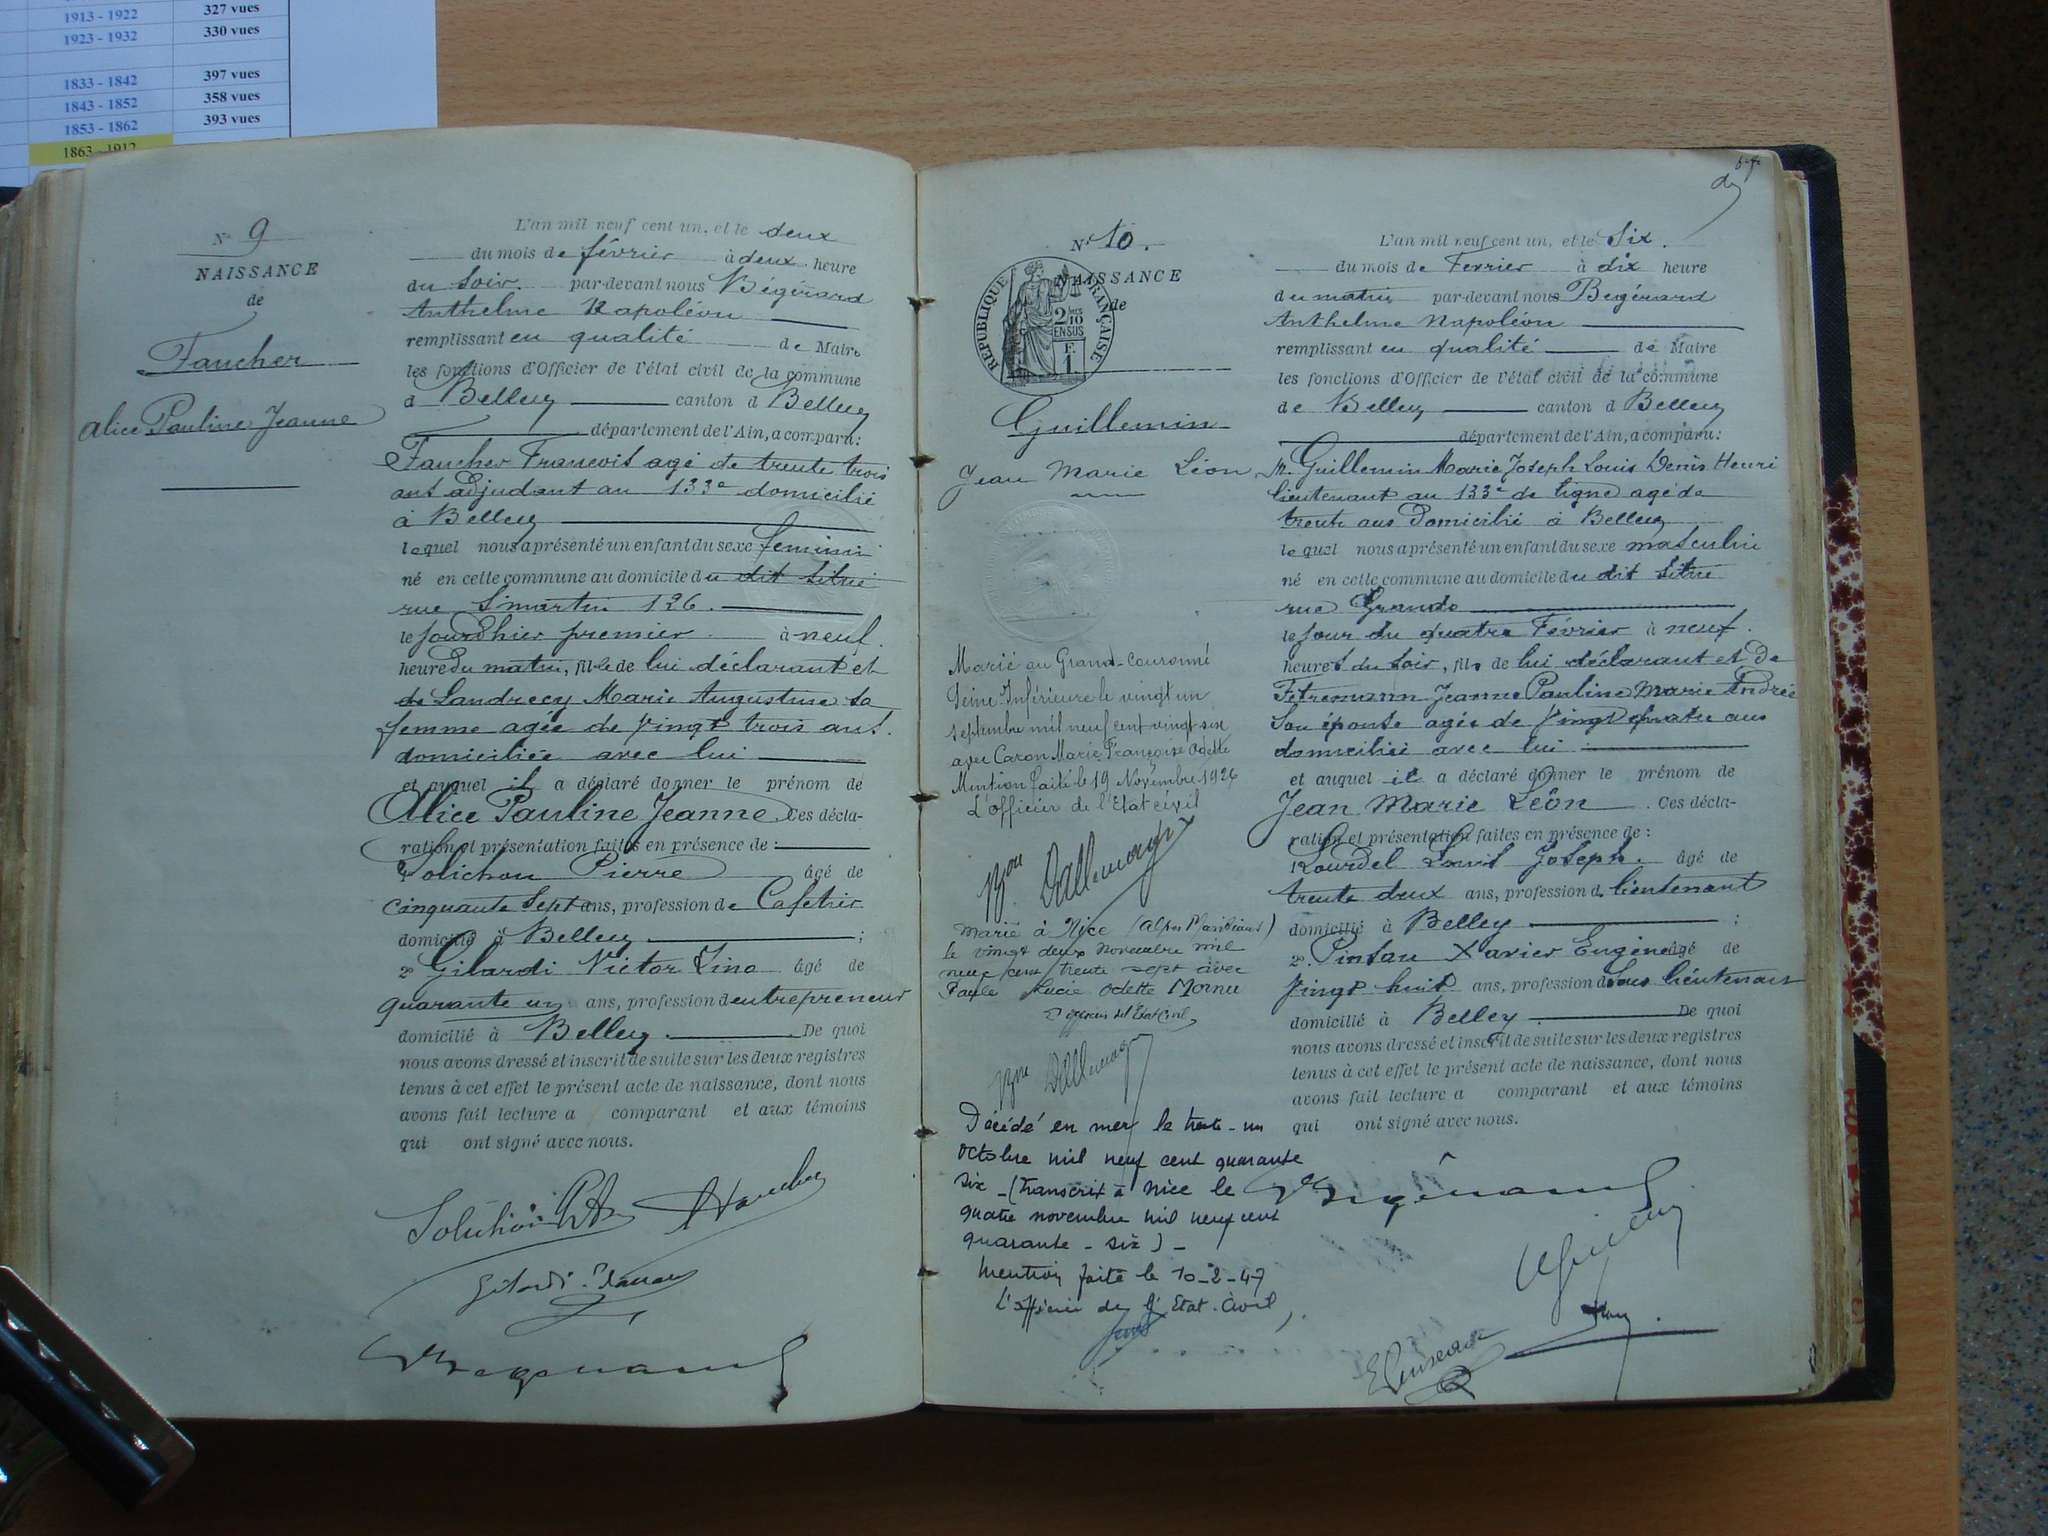 1913 - 1922 327 vues
1923 - 1932 330 vues
1833 - 1842 397 vues
1843 - 1852 358 vues
1853 - 1862 393 vues
1863 - 1912
N° 9
NAISSANCE
de
Faucher
Alice Pauline Jeanne
L'an mil neuf cent un, et le deux
du mois de février à deux heure
du soir. par-devant nous Bégérard
Anthelme Napoléon
remplissant en qualité de Maire
les fonctions d'Officier de l'état civil de la commune
d Belley canton d Belley
département de l'Ain, a comparu:
Faucher Francois agé de trente trois
ans adjudant au 133e domicilié
à Belley
lequel nous a présenté un enfant du sexe feminin
né en cette commune au domicile du dit situé
rue St martin 126.
le jour d'hier premier à neuf
heure du matin, fille de lui déclarant et
de Landrecy Marie Augustine sa
femme agée de vingt trois ans.
domiciliée avec lui
et auquel il a déclaré donner le prénom de
Alice Pauline Jeanne. Ces décla-
ration et présentation faites en présence de :
Solichon Pierre âgé de
cinquante sept ans, profession de Cafetier
domicilié à Belley ;
2° Gilardi Victor Lino âgé de
quarante un ans, profession d entrepreneur
domicilié à Belley. De quoi
nous avons dressé et inscrit de suite sur les deux registres
tenus à cet effet le présent acte de naissance, dont nous
avons fait lecture a comparant et aux témoins
qui ont signé avec nous.
N° 10.
NAISSANCE
de
REPUBLIQUE FRANÇAISE
2/10
EN SUS
F.
1
Guillemin
Jean Marie Léon
Marié au Grand-Couronné
Seine Inférieure le vingt un
septembre mil neuf cent vingt six
avec Caron Marie Françoise Odette
Mention faite le 19 Novembre 1926
L'officier de l'Etat civil
Dallemagne
Marié à Nice (Alpes Maritimes)
le vingt deux novembre mil
neuf cent trente sept avec
Lucie Odette
L'officier de l'Etat Civil,
Dallemagne
Décédé en mer le trente-un
octobre mil neuf cent quarante
six - (transcrit à Nice le
quatre novembre mil neuf cent
quarante - six) -
Mention faite le 10-2-47
L'officier de l'Etat-Civil,
L'an mil neuf cent un, et le Six.
du mois de Fevrier à dix heure
du matin par-devant nous Bégérard
Anthelme Napoléon
remplissant en qualité de Maire
les fonctions d'Officier de l'état civil de la commune
de Belley canton d Belley
département de l'Ain, a comparu:
M. Guillemin Marie Joseph Louis Denis Henri
lieutenant au 133e de ligne agé de
trente ans domicilié à Belley
lequel nous a présenté un enfant du sexe masculin
né en cette commune au domicile du dit situé
rue Grande
le jour du quatre Février à neuf.
heures du soir, fils de lui déclarant et de
Jeanne Pauline Marie Andrée
son épouse agée de vingt quatre ans
domiciliée avec lui
et auquel il a déclaré donner le prénom de
Jean Marie Léon. Ces décla-
ration et présentation faites en présence de :
Lourdel Louis Joseph. âgé de
trente deux ans, profession d. lieutenant
domicilié à Belley ;
2° Xavier Eugène âgé de
vingt huit ans, profession d sous lieutenant
domicilié à Belley De quoi
nous avons dressé et inscrit de suite sur les deux registres
tenus à cet effet le présent acte de naissance, dont nous
avons fait lecture a comparant et aux témoins
qui ont signé avec nous.